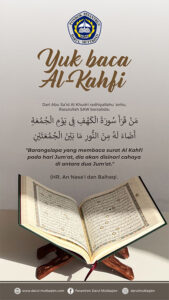 Yuk baca
Al-Kahfi
Dari Abu Sa'id Al Khudri radhiyallahu 'anhu,
Rasulullah SAW bersabda:
مَنْ قَرَأَ سُورَةَ الْكَهْفِ فِي يَوْمِ الْجُمُعَةِ
أَضَاءَ لَهُ مِنَ النُّورِ مَا بَيْنَ الْجُمُعَتَيْنِ
"Barangsiapa yang membaca surat Al Kahfi
pada hari Jum'at, dia akan disinari cahaya
di antara dua Jum'at."
(HR. An Nasa'i dan Baihaqi).